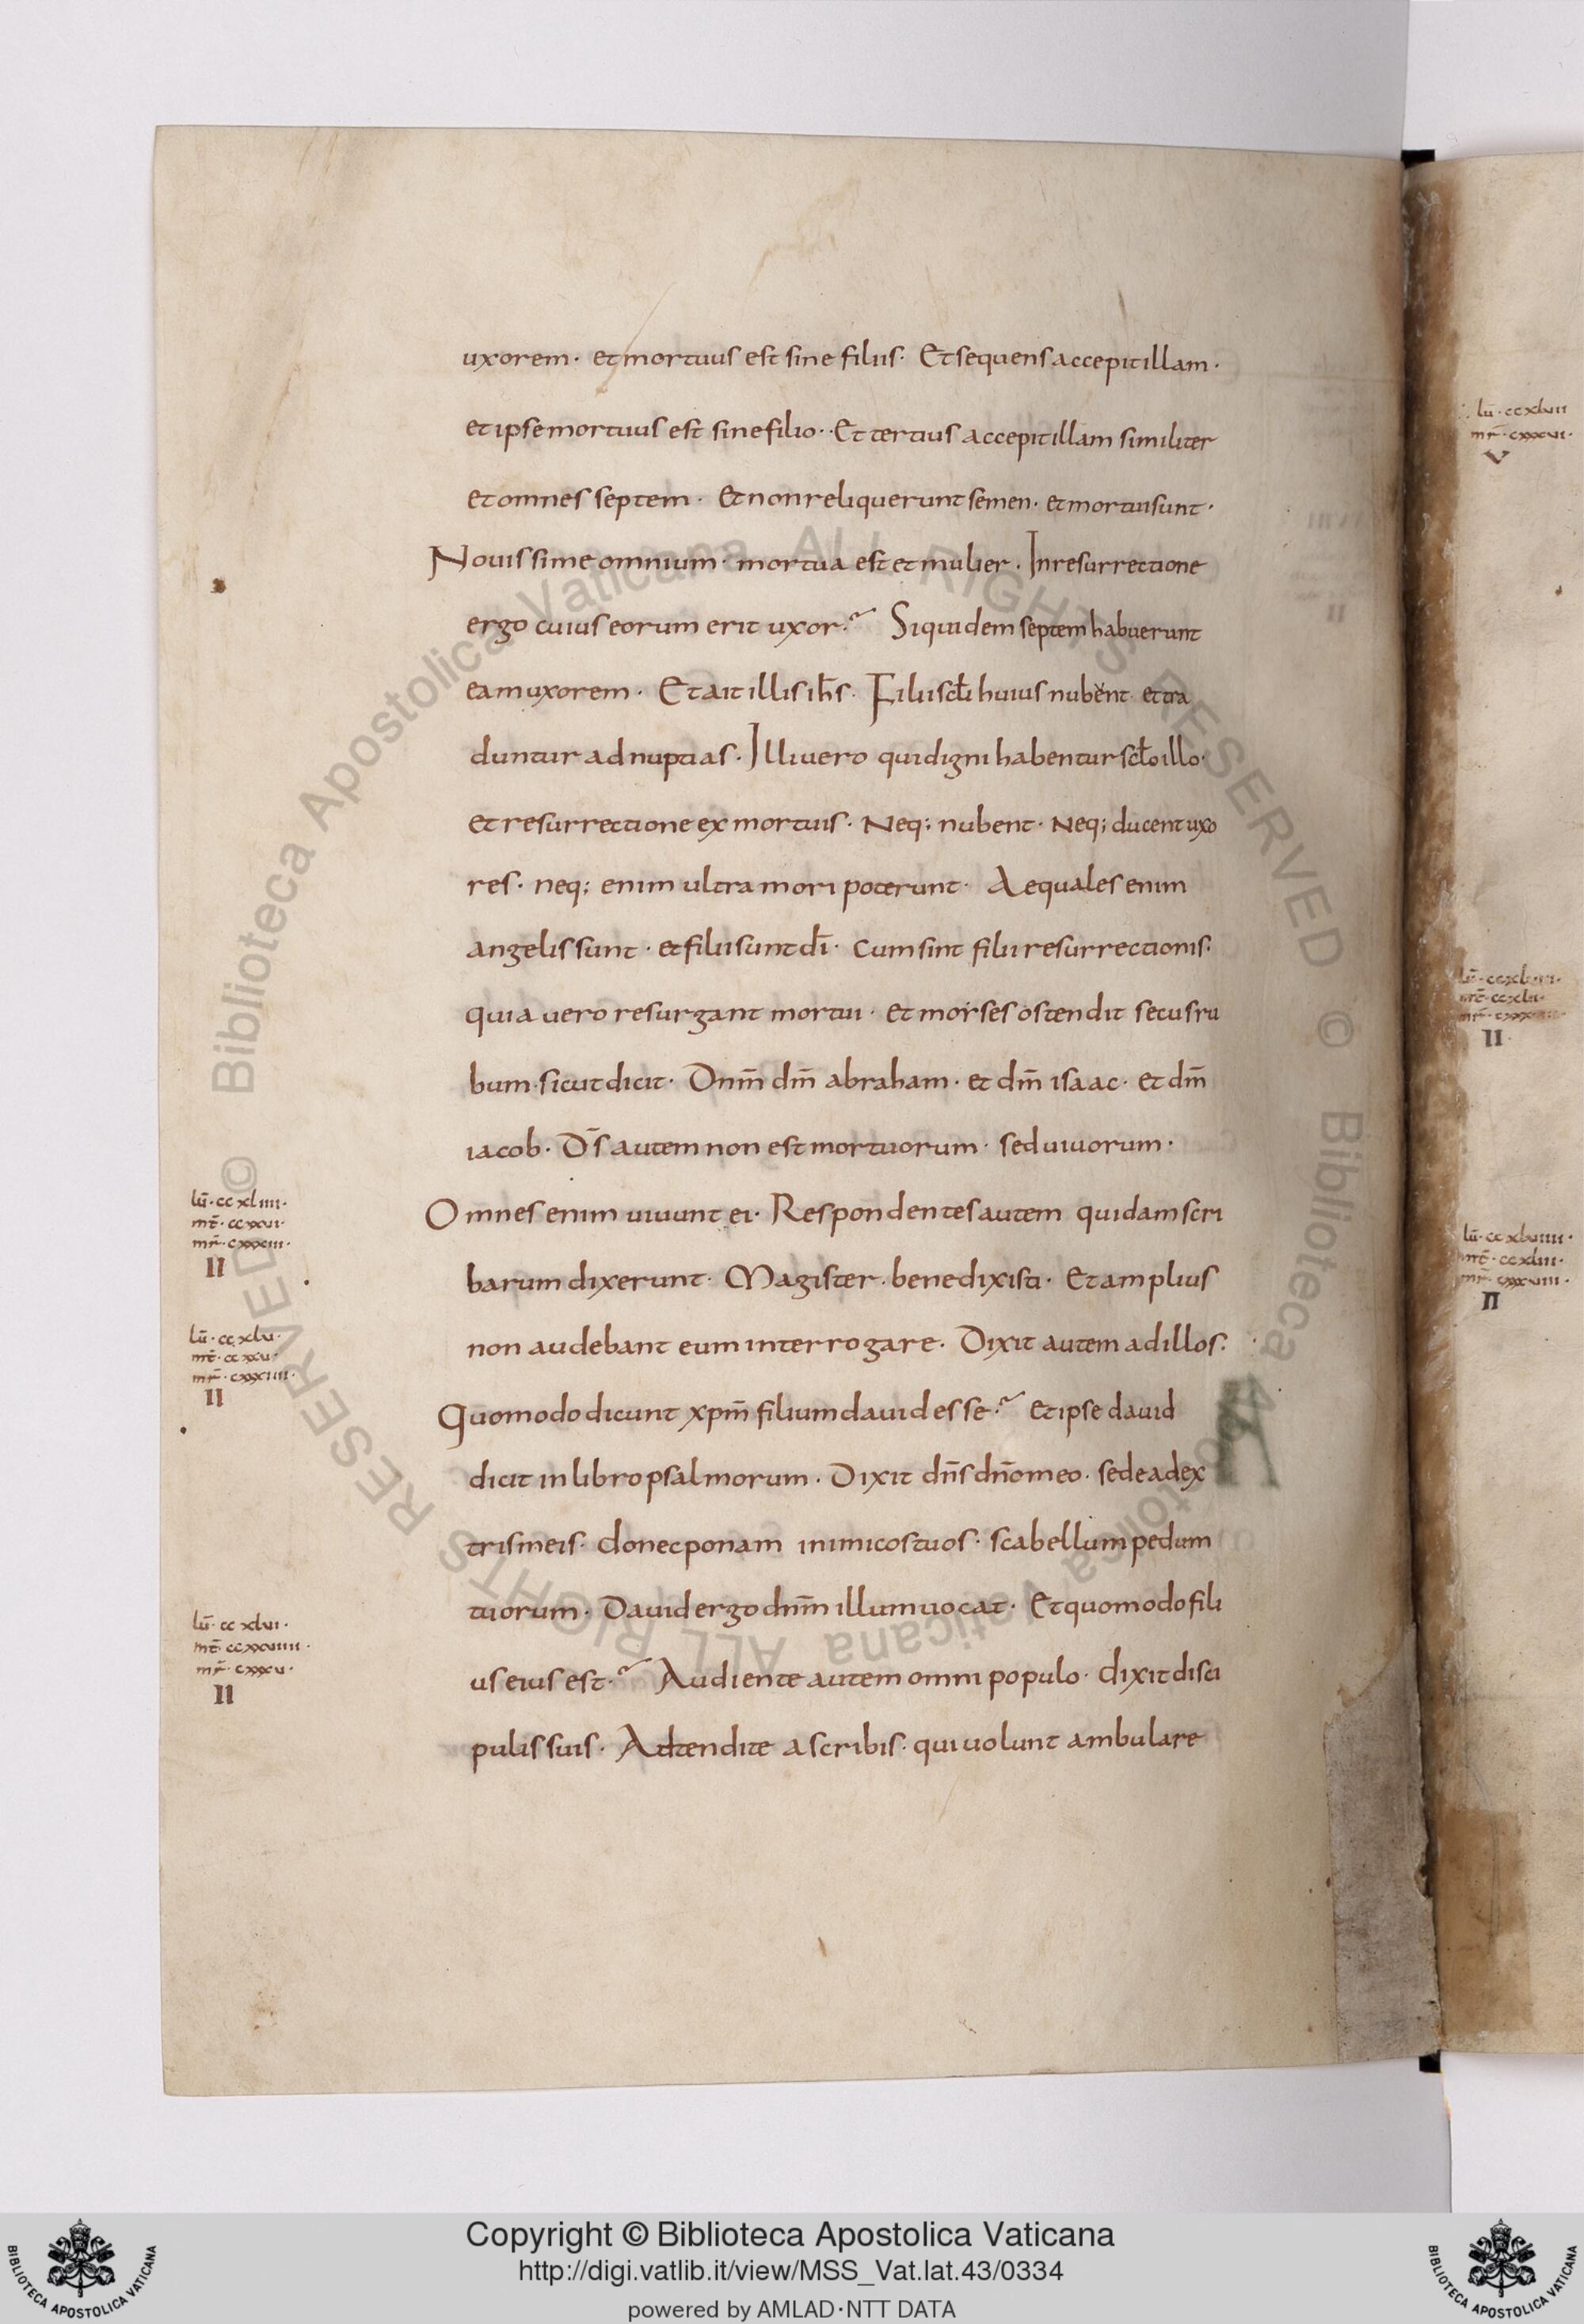 uxorem · et mortuus est sine filiis · Et sequens accepit illam ·
et ipse mortuus est sine filio · Et tertius accepit illam similiter
et omnes septem · Et non reliquerunt semen · et mortui sunt ·
Nouissime omnium · mortua est et mulier · In resurrectione
ergo cuius eorum erit uxor? Siquidem septem habuerunt
eam uxorem · Et ait illis ih̄s · Filii sc̄li huius nubent · et tra
duntur ad nuptias · Illi uero qui digni habentur sc̄lo illo ·
et resurrectione ex mortuis · Neq; nubent · Neq; ducent uxo
res · neq; enim ultra mori poterunt · Aequales enim
angelis sunt · et filii sunt dī · Cum sint filii resurrectionis ·
quia uero resurgant mortui · et moyses ostendit secus ru
bum · sicut dicit · Dnm̄ dm̄ abraham · et dm̄ isaac · et dm̄
iacob · Ds̄ autem non est mortuorum · sed uiuorum ·
Omnes enim uiuunt ei · Respondentes autem quidam scri
barum dixerunt · Magister · bene dixisti · Et amplius
non audebant eum interrogare · Dixit autem ad illos ·
Quomodo dicunt xpm̄ filium dauid esse? Et ipse dauid
dicit in libro psalmorum · Dixit dn̄s dn̄o meo · sede a dex
tris meis · donec ponam inimicos tuos · scabellum pedum
tuorum · Dauid ergo dnm̄ illum uocat · Et quomodo fili
us eius est? Audiente autem omni populo · dixit disci
pulis suis · Adtendite a scribis · qui uolunt ambulare
lū · cc xl iiii ·
mr̄ · cxxxiii ·
II
lū · cc xlu ·
mr̄ · cxxxiiii ·
II
lū · cc xlui ·
mr̄ · cxxxu ·
II
lū · cc xluii
mr̄ · cxxxui ·
V
II
lū · cc xluiiii ·
mt̄ · cc xliii ·
mr̄ · cxxxuiii ·
II
© Biblioteca Apostolica Vaticana ALL RIGHTS RESERVED
© Biblioteca Apostolica Vaticana ALL RIGHTS RESERVED
Copyright © Biblioteca Apostolica Vaticana
http://digi.vatlib.it/view/MSS_Vat.lat.43/0334
powered by AMLAD·NTT DATA
BIBLIOTECA APOSTOLICA VATICANA
BIBLIOTECA APOSTOLICA VATICANA